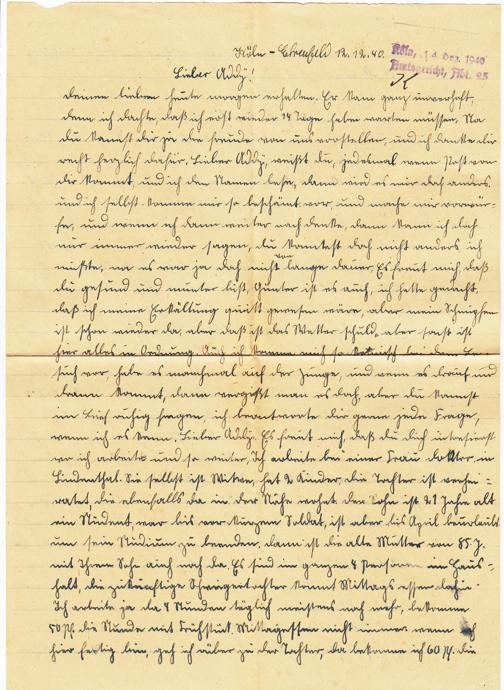 Köln - Ehrenfeld 12.12.40.
Köln, 14. Dez. 1940
Amtsgericht, Abt. 25
Lieber Addy!
deinen lieben heute morgen erhalten. Er kam ganz unverhofft,
denn ich dachte, daß ich erst wieder 14 Tage hätte warten müssen, Na
du kannst dir ja die Freude von uns vorstellen, und ich danke dir
recht herzlich dafür. Lieber Addy, weißt du, jedesmal wenn Post von
dir kommt, und ich den Namen lese, dann wird es mir doch anders.
und ich selbst komme mir so beschämt vor, und mache mir Vorwür-
fe, und wenn ich dann weiter nach denke, dann kann ich doch
mir immer wieder sagen, du konntest doch nicht anders ich
wußte, na es war ja doch nicht von langer dauer. Es freut mich, daß
du gesund und munter bist, Günter ist es auch, ich hatte gedacht,
daß ich meine Erkältung quitt gewesen wäre, aber mein Schnupfen
ist schon wieder da, aber daß ist das Wetter schuld, aber sonst ist
hier alles in Ordnung. Auch ich komme mich so komisch bei dem Be-
such vor, habe es manchmal auf der Zunge, und wenn es drauf und
dran kommt, dann vergißt man es doch, aber du kannst
im Brief ruhig fragen, ich beantworte dir gerne jede Frage,
wenn ich es kann. Lieber Addy. Es freut mich, daß du dich interesierst
wo ich arbeite und so weiter, Ich arbeite bei einer Frau Doktor in
Lindenthal. Sie selbst ist Witwe, hat 2 Kinder, die Tochter ist verhei-
ratet, die ebenfalls da in der Nähe wohnt der Sohn ist 21 Jahre alt
ein Student, war bis vor kurzem Soldat, ist aber bis April beurlaubt
um sein Studium zu beenden, dann ist die alte Mutter von 85 J.
mit Ihrem Sohn auch noch da. Es sind im ganzen 4 Personen im Haus-
halt, die zukünftige Schwiegertochter kommt Mittags essen dahin.
Ich arbeite ja da 4 Stunden täglich meistens noch mehr, bekomme
50 Pf. die Stunde mit Frühstück. Mittagessen nicht immer wenn ich
hier fertig bin, geh ich rüber zu der Tochter, da bekomme ich 60 Pf. die